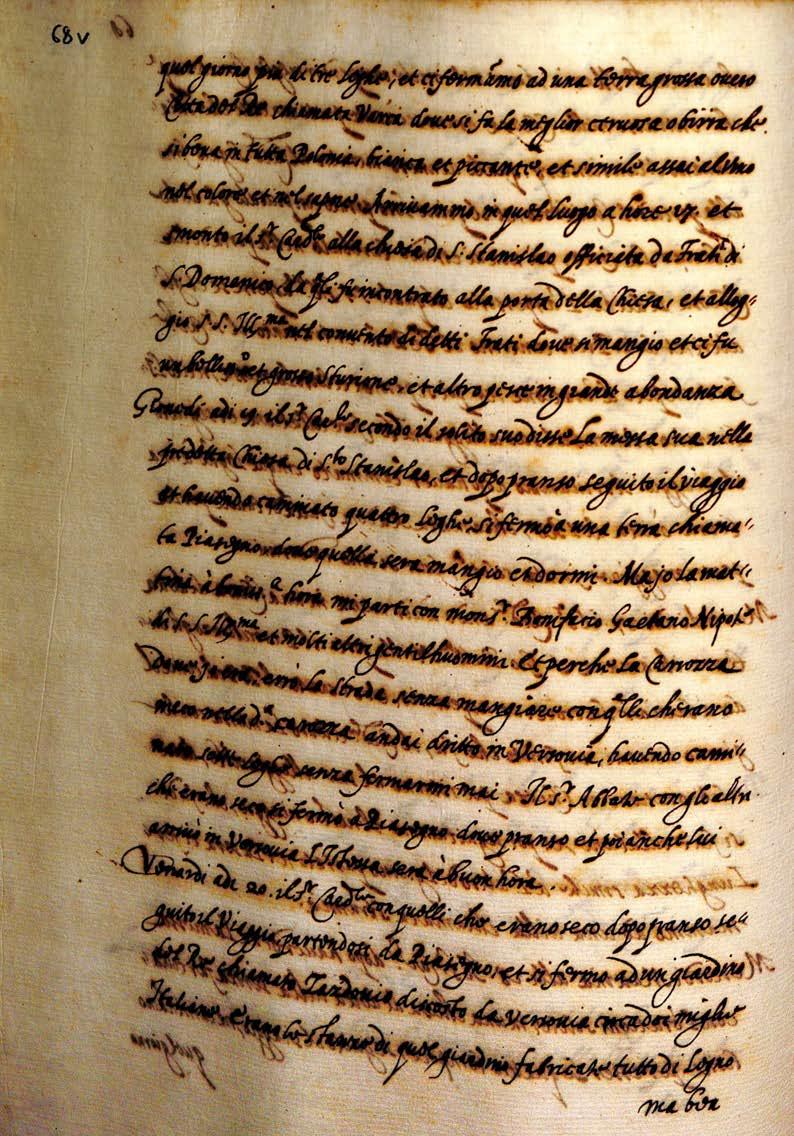 68v
quel giorno più di tre leghe, et ci fermâmo ad una terra grossa overo
Città del Re chiamata Varca dove si fa la meglior cervosa o birra che
si beva in tutta Polonia, bianca et piccante, et simile assai al vino
nel colore et nel sapore. Arrivammo in quel luogo a hore 17. et
smontò il s.r Card.le alla chiesa di S. Stanislao officiata da Frati di
S. Domenico da q.li fu incontrato alla porta della Chiesa, et allog-
giò S. S. Ill.ma nel convento di detti Frati dove si mangiò et ci fu
un bellis.o et grosso sturione, et altro pesce in grande abondanza
Giovedi adi 19 il s.r Card.le secondo il solito suo disse la messa sua nella
predetta Chiesa di S.to Stanislao, et dopo pranso seguitò il viaggio
et havendo caminato quattro leghe si fermò a una terra chiama-
ta Piasegno, dove quella sera mangiò et dormì. Ma jo la mat-
tina à bonis.a hora mi parti con Mons.r Bonifacio Gaetano Nipote
di S. S. Ill.ma et molti altri gentilhuomini. Et perche la Carrozza
Dove jo era, errò la strada senza mangiare con q.lli ch'erano
meco nella d.a carrozza andai dritto in Versovia, havendo cami-
nato sette leghe senza fermarmi mai. Il s.r Abbate con gle altri
che erano seco si fermò a Piasegno dove pransò et poi anche lui
arrivò in Versovia l'istessa sera à buon hora.
Venardi adi 20. il s.r Card.le con quelli che erano seco dopo pranso se-
guitò il Viaggio partendosi da Piasegno, et si fermò ad un giardino
del Re chiamato Jazdovia discosto da Versovia circa doi miglie
Italiane. Erano le stanze di quel giardino fabricate tutto di legno
ma ben